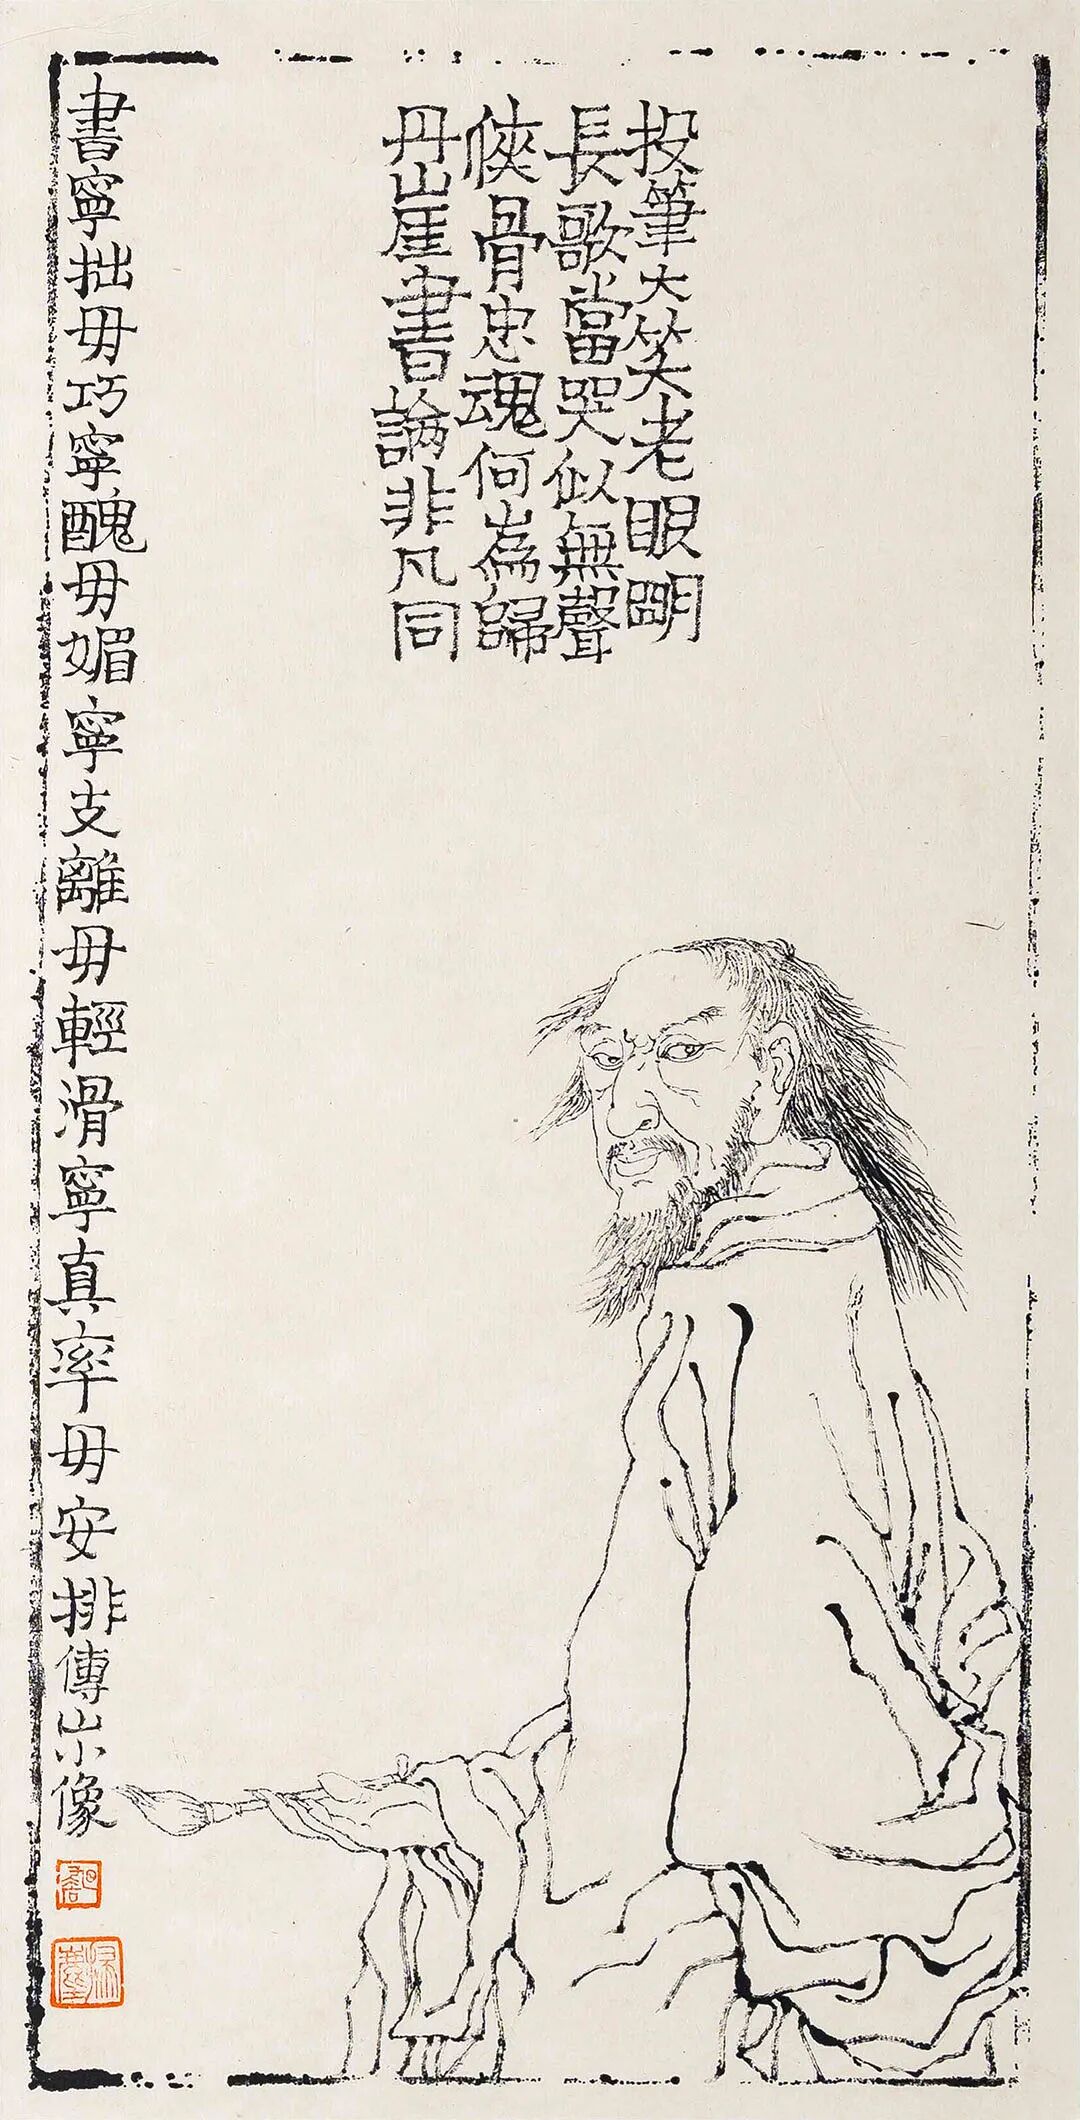 投筆大笑老眼明
長歌當哭似無聲
俠骨忠魂何為歸
丹崖書論非凡同
書寧拙毋巧寧醜毋媚寧支離毋輕滑寧真率毋安排傅山小像